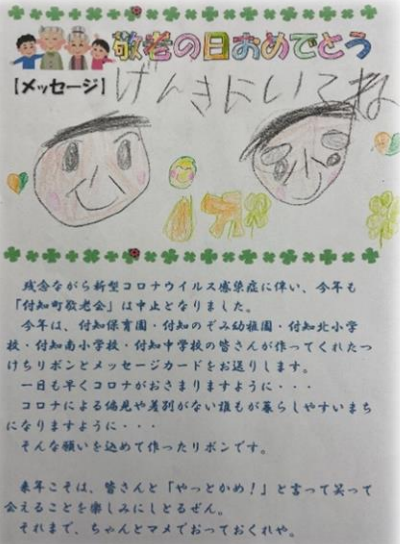 敬老の日おめでとう
【メッセージ】げんきにいてね
残念ながら新型コロナウイルス感染症に伴い、今年も
「付知町敬老会」は中止となりました。
今年は、付知保育園・付知のぞみ幼稚園・付知北小学
校・付知南小学校・付知中学校の皆さんが作ってくれたつ
けちリボンとメッセージカードをお送りします。
一日も早くコロナがおさまりますように・・・
コロナによる偏見や差別がない誰もが暮らしやすいまち
になりますように・・・
そんな願いを込めて作ったリボンです。
来年こそは、皆さんと「やっとかめ！」と言って笑って
会えることを楽しみにしとるぜん。
それまで、ちゃんとマメでおっておくれや。